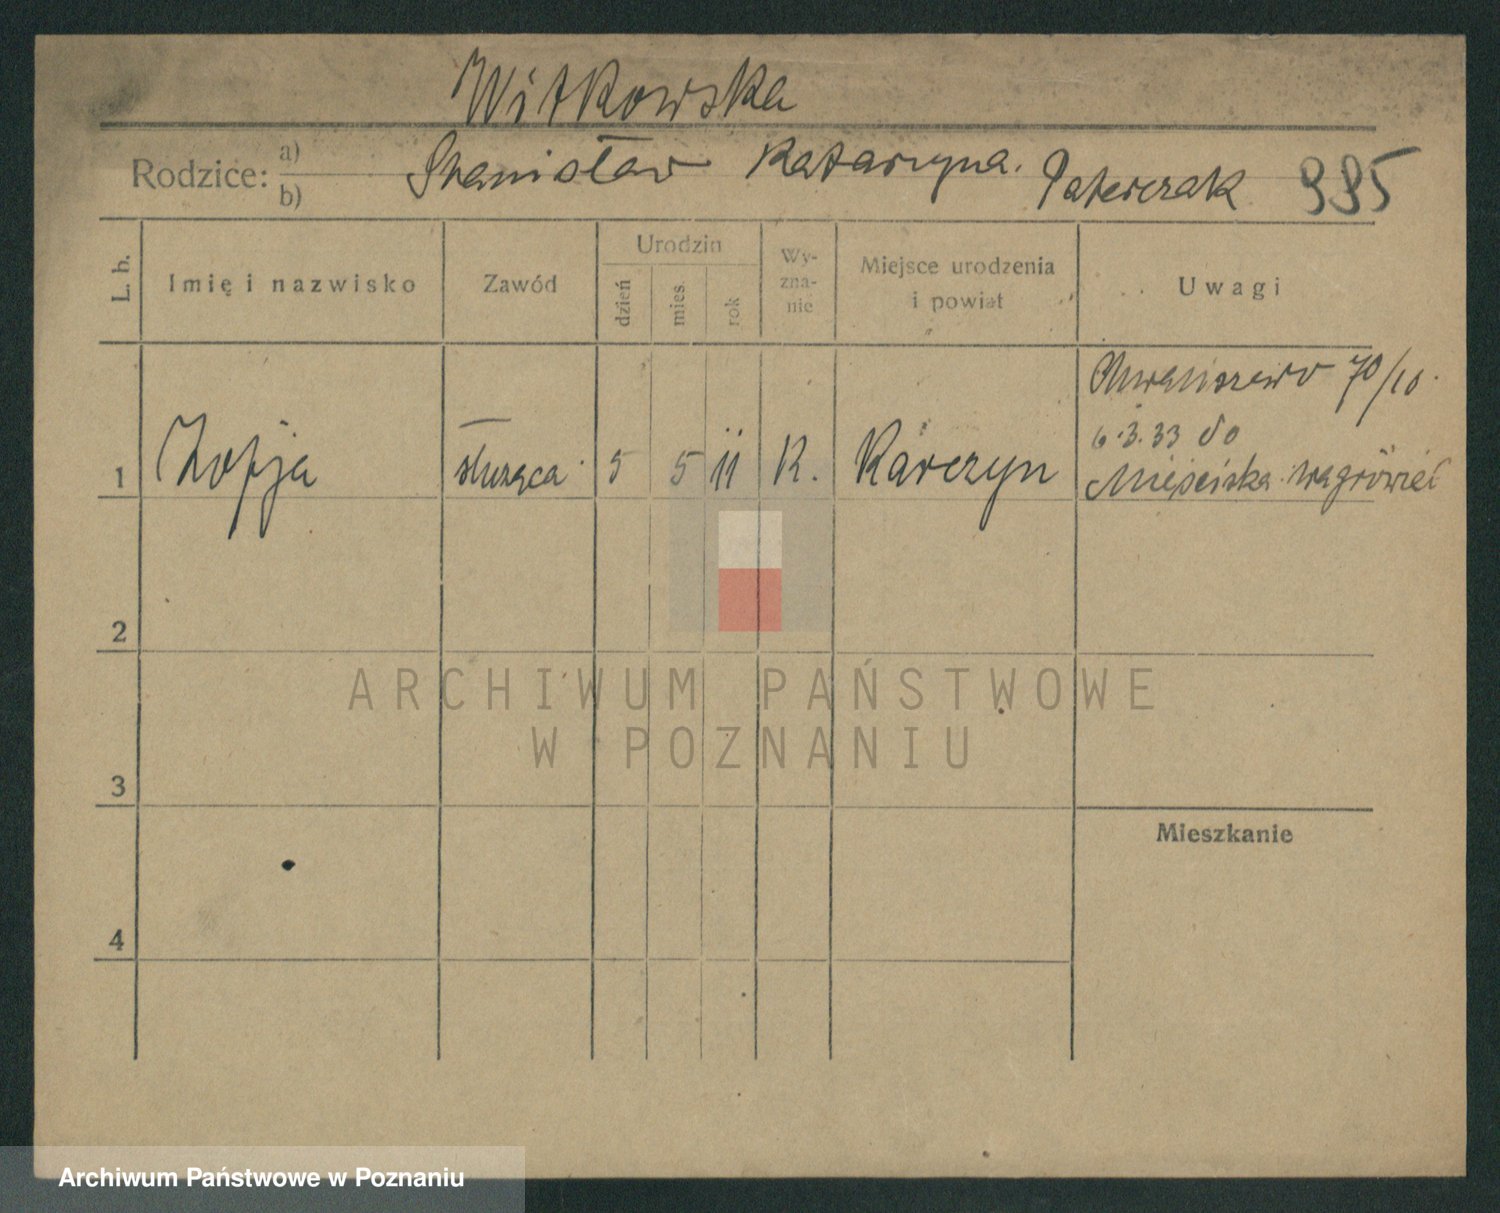 Witkowska
Rodzice: a) b) Stanisław Katarzyna. Paterczak 995
L. b. Imię i nazwisko Zawód Urodzin dzień mies. rok Wy-zna-nie Miejsce urodzenia i powiat Uwagi
Chwaliszewo 70/10.
6.3.33 do
1 Zofja służąca 5 5 11 K. Karczyn Mieściska Wągrówiec
2
ARCHIWUM PAŃSTWOWE
W POZNANIU
3
Mieszkanie
4
Archiwum Państwowe w Poznaniu